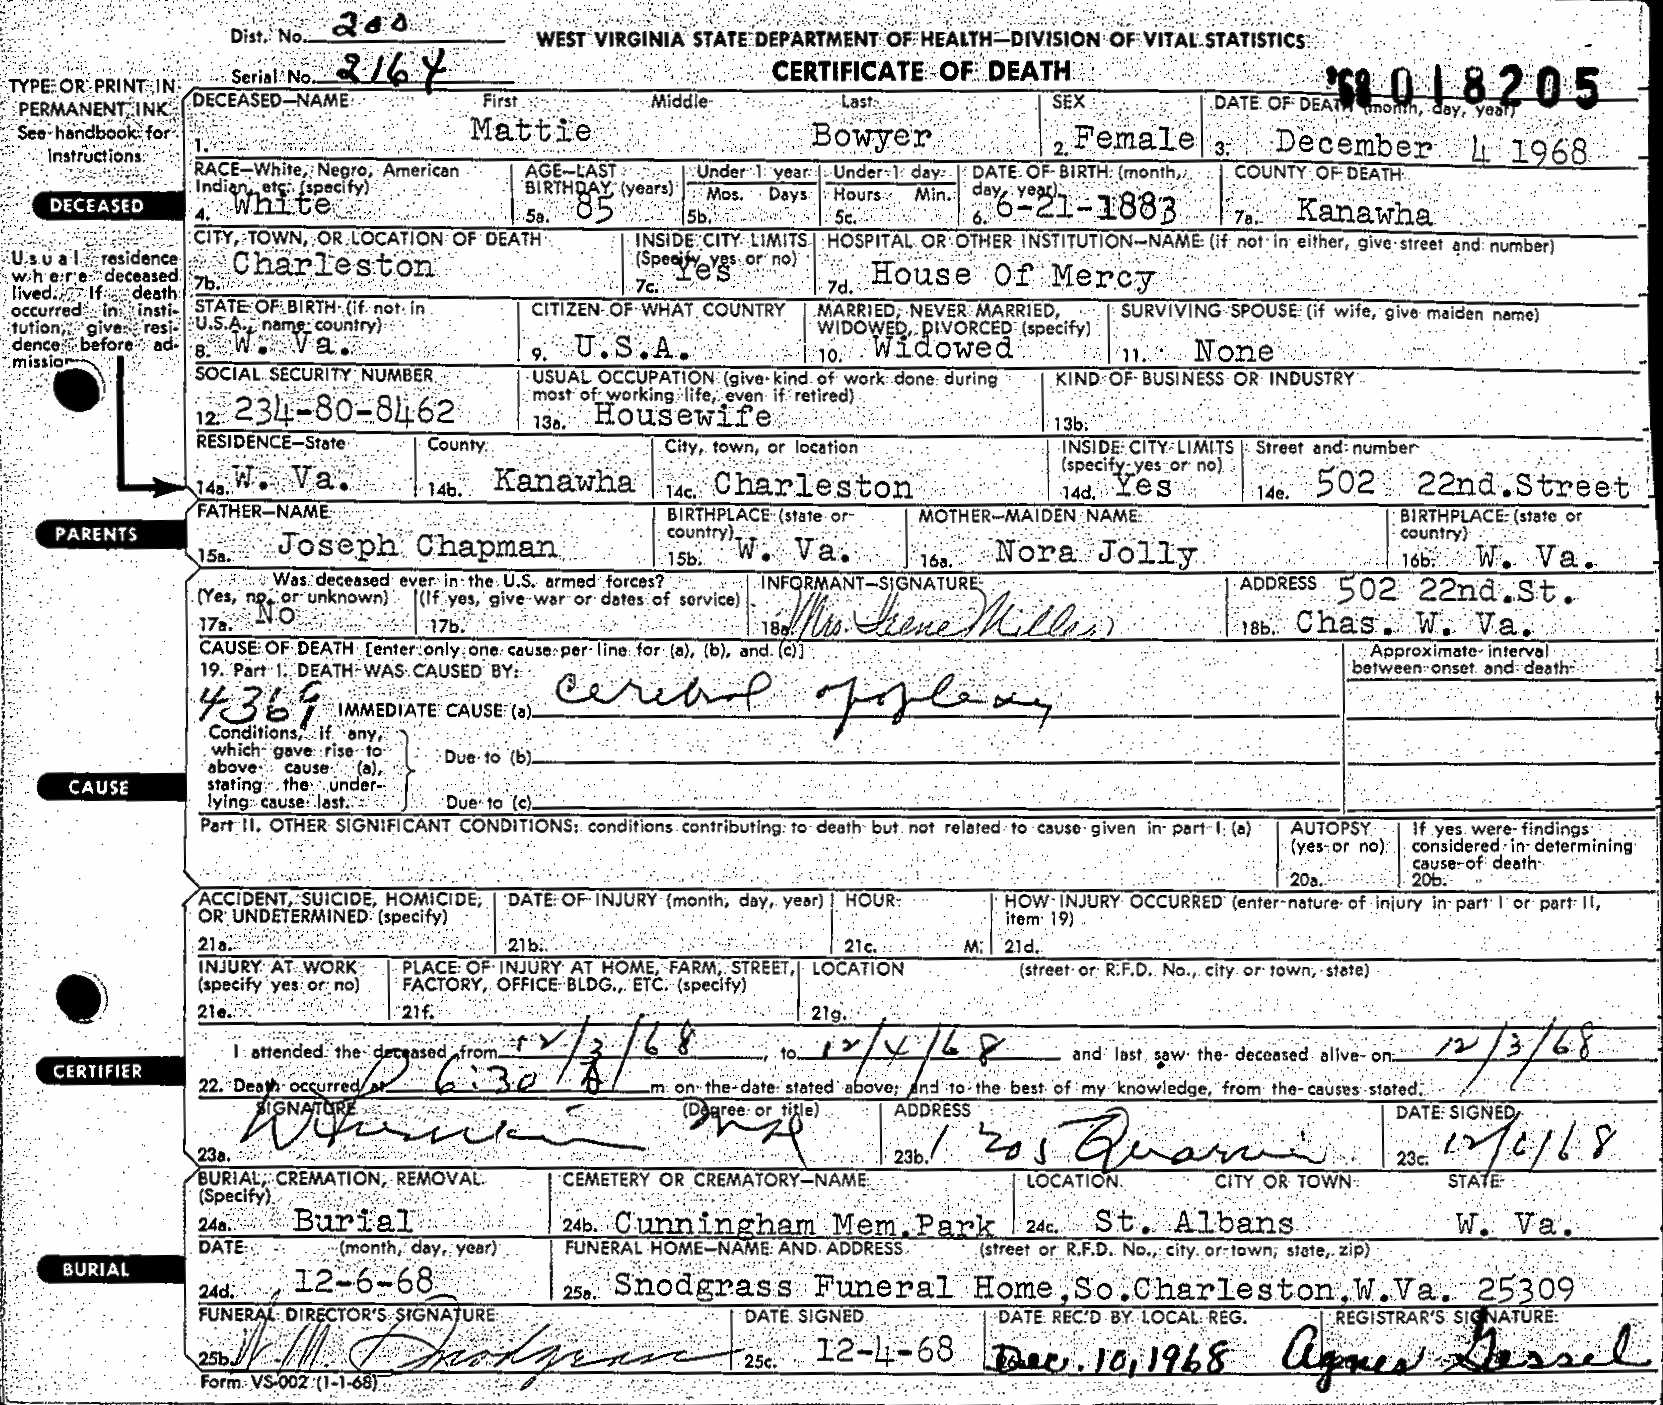 Dist. No. 200
WEST VIRGINIA STATE DEPARTMENT OF HEALTH—DIVISION OF VITAL STATISTICS
Serial No. 2164
CERTIFICATE OF DEATH
'68 018205
TYPE OR PRINT IN PERMANENT INK
See handbook for Instructions
DECEASED—NAME First Middle Last
1. Mattie Bowyer
SEX
2. Female
DATE OF DEATH (month, day, year)
3. December 4 1968
DECEASED
RACE—White, Negro, American Indian, etc. (specify)
4. White
AGE—LAST BIRTHDAY (years)
5a. 85
Under 1 year
Mos. Days
5b.
Under 1 day
Hours Min.
5c.
DATE OF BIRTH (month, day, year)
6. 6-21-1883
COUNTY OF DEATH
7a. Kanawha
Usual residence where deceased lived. If death occurred in institution, give residence before admission
CITY, TOWN, OR LOCATION OF DEATH
7b. Charleston
INSIDE CITY LIMITS (Specify yes or no)
7c. Yes
HOSPITAL OR OTHER INSTITUTION—NAME (if not in either, give street and number)
7d. House Of Mercy
STATE OF BIRTH (if not in U.S.A., name country)
8. W. Va.
CITIZEN OF WHAT COUNTRY
9. U.S.A.
MARRIED, NEVER MARRIED, WIDOWED, DIVORCED (specify)
10. Widowed
SURVIVING SPOUSE (if wife, give maiden name)
11. None
SOCIAL SECURITY NUMBER
12. 234-80-8462
USUAL OCCUPATION (give kind of work done during most of working life, even if retired)
13a. Housewife
KIND OF BUSINESS OR INDUSTRY
13b.
RESIDENCE—State
14a. W. Va.
County
14b. Kanawha
City, town, or location
14c. Charleston
INSIDE CITY LIMITS (specify yes or no)
14d. Yes
Street and number
14e. 502 22nd.Street
PARENTS
FATHER—NAME
15a. Joseph Chapman
BIRTHPLACE (state or country)
15b. W. Va.
MOTHER—MAIDEN NAME
16a. Nora Jolly
BIRTHPLACE (state or country)
16b. W. Va.
Was deceased ever in the U.S. armed forces?
(Yes, no, or unknown) (If yes, give war or dates of service)
17a. No
17b.
INFORMANT—SIGNATURE
18a. Mrs. Irene Miller
ADDRESS 502 22nd.St.
18b. Chas. W. Va.
CAUSE OF DEATH [enter only one cause per line for (a), (b), and (c)]
Approximate interval between onset and death
19. Part I. DEATH WAS CAUSED BY:
4369 IMMEDIATE CAUSE (a) Cerebral apoplexy
Conditions, if any, which gave rise to above cause (a), stating the underlying cause last.
Due to (b)
Due to (c)
CAUSE
Part II. OTHER SIGNIFICANT CONDITIONS: conditions contributing to death but not related to cause given in part I (a)
AUTOPSY (yes or no)
20a.
If yes were findings considered in determining cause of death
20b.
ACCIDENT, SUICIDE, HOMICIDE, OR UNDETERMINED (specify)
21a.
DATE OF INJURY (month, day, year)
21b.
HOUR
21c. M.
HOW INJURY OCCURRED (enter nature of injury in part I or part II, item 19)
21d.
INJURY AT WORK (specify yes or no)
21e.
PLACE OF INJURY AT HOME, FARM, STREET, FACTORY, OFFICE BLDG., ETC. (specify)
21f.
LOCATION (street or R.F.D. No., city or town, state)
21g.
CERTIFIER
I attended the deceased from 12/3/68, to 12/4/68 and last saw the deceased alive on 12/3/68
22. Death occurred at 6:30 A m on the date stated above; and to the best of my knowledge, from the causes stated.
SIGNATURE (Degree or title)
23a.
ADDRESS
23b.
DATE SIGNED
23c.
BURIAL, CREMATION, REMOVAL (Specify)
24a. Burial
CEMETERY OR CREMATORY—NAME
24b. Cunningham Mem.Park
LOCATION CITY OR TOWN STATE
24c. St. Albans W. Va.
BURIAL
DATE (month, day, year)
24d. 12-6-68
FUNERAL HOME—NAME AND ADDRESS (street or R.F.D. No., city or town, state, zip)
25a. Snodgrass Funeral Home,So.Charleston,W.Va. 25309
FUNERAL DIRECTOR'S SIGNATURE
25b. W. M. Snodgrass
DATE SIGNED
25c. 12-4-68
DATE REC'D BY LOCAL REG.
Dec. 10, 1968
REGISTRAR'S SIGNATURE
Agnes
Form VS-002 (1-1-68)